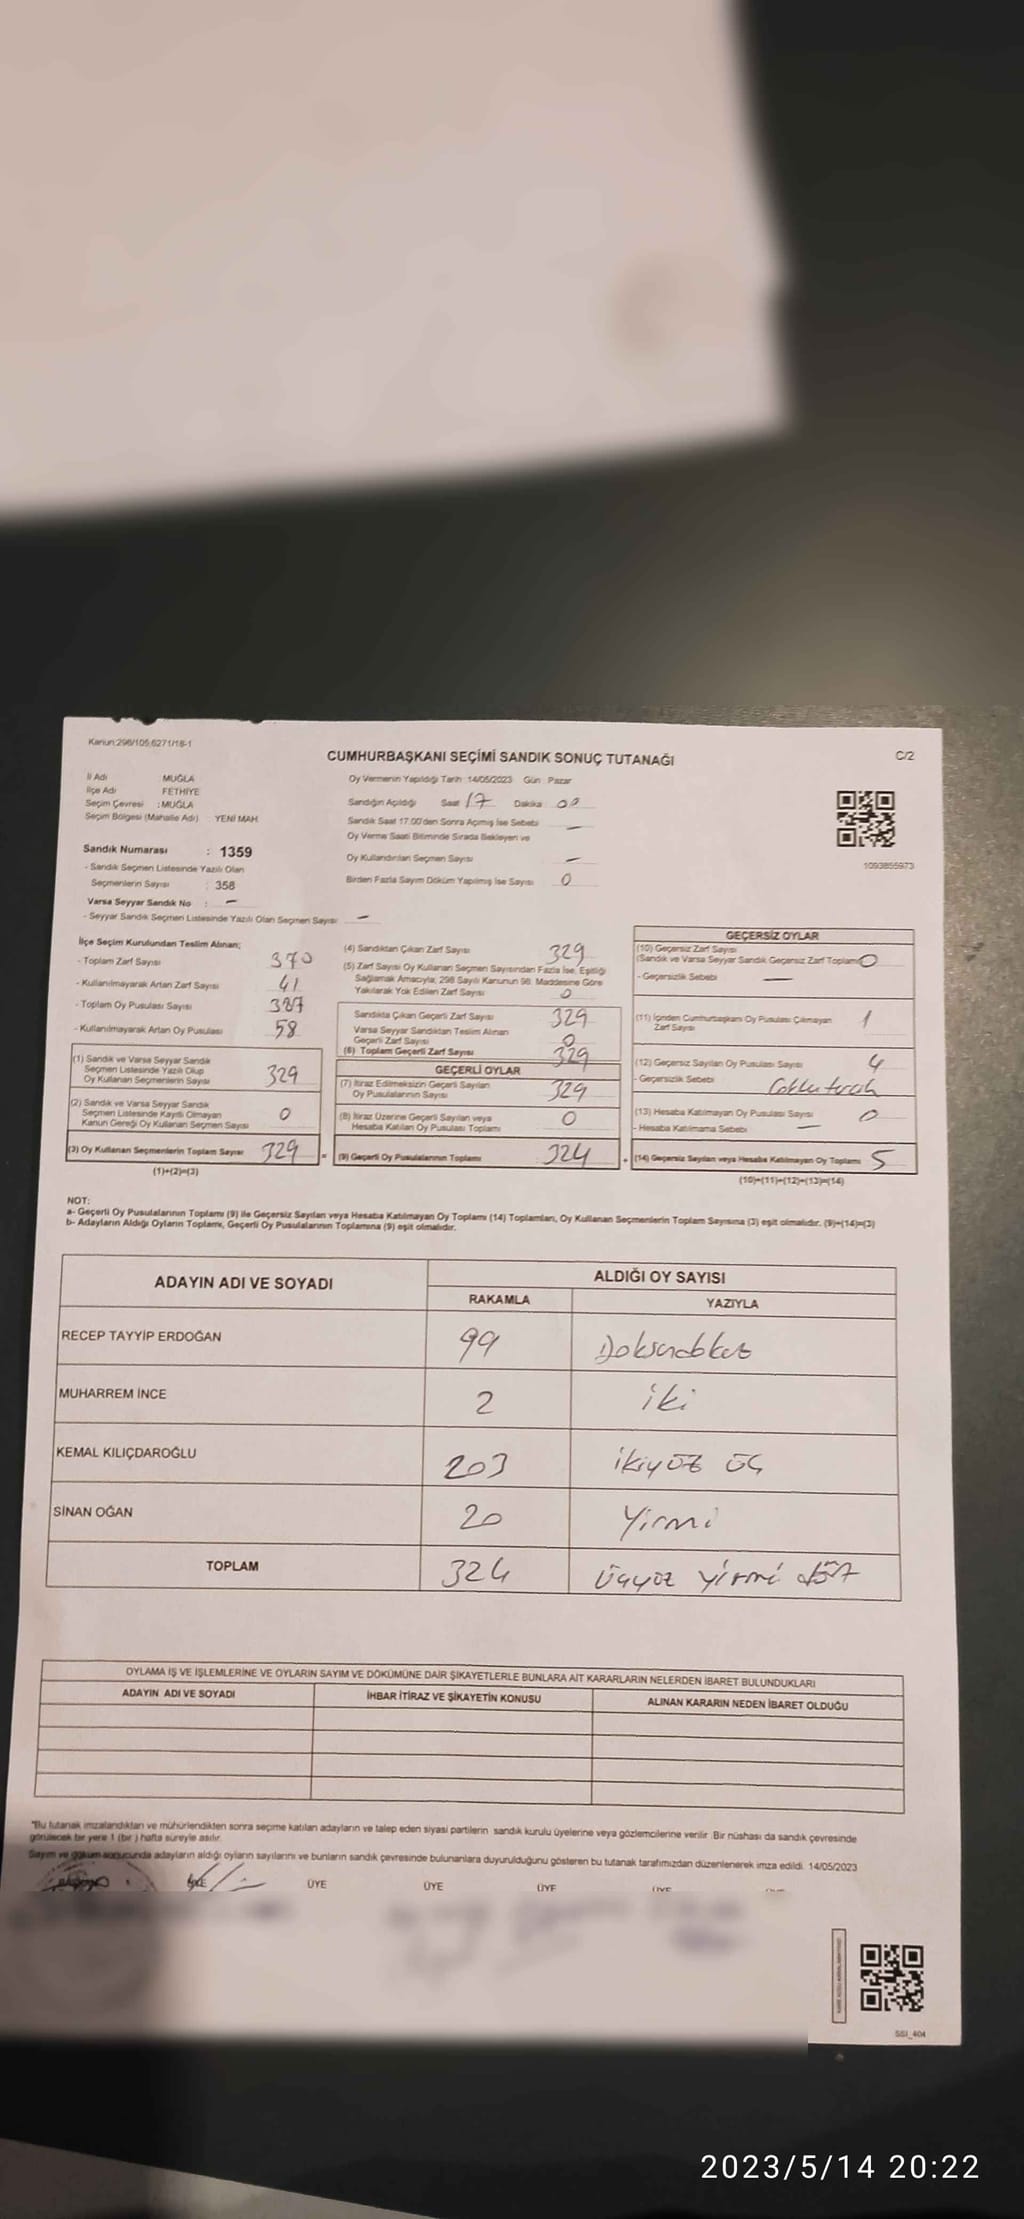 Kanun:298/105,6271/18-1
CUMHURBAŞKANI SEÇİMİ SANDIK SONUÇ TUTANAĞI
C/2
İl Adı : MUĞLA
İlçe Adı : FETHİYE
Seçim Çevresi : MUĞLA
Seçim Bölgesi (Mahalle Adı) YENİ MAH.
Oy Vermenin Yapıldığı Tarih: 14/05/2023 Gün: Pazar
Sandığın Açıldığı Saat 17 Dakika : 00
Sandık Saat 17.00'den Sonra Açılmış İse Sebebi —
Oy Verme Saati Bitiminde Sırada Bekleyen ve
Oy Kullandırılan Seçmen Sayısı —
Birden Fazla Sayım Döküm Yapılmış İse Sayısı 0
1093855973
Sandık Numarası : 1359
- Sandık Seçmen Listesinde Yazılı Olan
Seçmenlerin Sayısı : 358
Varsa Seyyar Sandık No : —
- Seyyar Sandık Seçmen Listesinde Yazılı Olan Seçmen Sayısı —
İlçe Seçim Kurulundan Teslim Alınan;
- Toplam Zarf Sayısı 370
- Kullanılmayarak Artan Zarf Sayısı 41
- Toplam Oy Pusulası Sayısı 387
- Kullanılmayarak Artan Oy Pusulası 58
(1) Sandık ve Varsa Seyyar Sandık
Seçmen Listesinde Yazılı Olup
Oy Kullanan Seçmenlerin Sayısı 329
(2) Sandık ve Varsa Seyyar Sandık
Seçmen Listesinde Kayıtlı Olmayan
Kanun Gereği Oy Kullanan Seçmen Sayısı 0
(3) Oy Kullanan Seçmenlerin Toplam Sayısı 329
(1)+(2)=(3)
(4) Sandıktan Çıkan Zarf Sayısı 329
(5) Zarf Sayısı Oy Kullanan Seçmen Sayısından Fazla İse, Eşitliği
Sağlamak Amacıyla, 298 Sayılı Kanunun 98. Maddesine Göre
Yakılarak Yok Edilen Zarf Sayısı 0
Sandıkta Çıkan Geçerli Zarf Sayısı 329
Varsa Seyyar Sandıktan Teslim Alınan
Geçerli Zarf Sayısı 0
(6) Toplam Geçerli Zarf Sayısı 329
GEÇERLİ OYLAR
(7) İtiraz Edilmeksizin Geçerli Sayılan
Oy Pusulalarının Sayısı 329
(8) İtiraz Üzerine Geçerli Sayılan veya
Hesaba Katılan Oy Pusulası Toplamı 0
(9) Geçerli Oy Pusulalarının Toplamı 324
GEÇERSİZ OYLAR
(10) Geçersiz Zarf Sayısı
(Sandık ve Varsa Seyyar Sandık Geçersiz Zarf Toplamı) 0
- Geçersizlik Sebebi —
(11) İçinden Cumhurbaşkanı Oy Pusulası Çıkmayan
Zarf Sayısı 1
(12) Geçersiz Sayılan Oy Pusulası Sayısı 4
- Geçersizlik Sebebi
(13) Hesaba Katılmayan Oy Pusulası Sayısı 0
- Hesaba Katılmama Sebebi —
(14) Geçersiz Sayılan veya Hesaba Katılmayan Oy Toplamı 5
(10)+(11)+(12)+(13)=(14)
NOT:
a- Geçerli Oy Pusulalarının Toplamı (9) ile Geçersiz Sayılan veya Hesaba Katılmayan Oy Toplamı (14) Toplamları, Oy Kullanan Seçmenlerin Toplam Sayısına (3) eşit olmalıdır. (9)+(14)=(3)
b- Adayların Aldığı Oyların Toplamı, Geçerli Oy Pusulalarının Toplamına (9) eşit olmalıdır.
ADAYIN ADI VE SOYADI
ALDIĞI OY SAYISI
RAKAMLA YAZIYLA
RECEP TAYYİP ERDOĞAN 99
MUHARREM İNCE 2 iki
KEMAL KILIÇDAROĞLU 203 ikiyüz üç
SİNAN OĞAN 20 Yirmi
TOPLAM 324 Üçyüz yirmi dört
OYLAMA İŞ VE İŞLEMLERİNE VE OYLARIN SAYIM VE DÖKÜMÜNE DAİR ŞİKAYETLERLE BUNLARA AİT KARARLARIN NELERDEN İBARET BULUNDUKLARI
ADAYIN ADI VE SOYADI İHBAR İTİRAZ VE ŞİKAYETİN KONUSU ALINAN KARARIN NEDEN İBARET OLDUĞU
"Bu tutanak imzalandıktan ve mühürlendikten sonra seçime katılan adayların ve talep eden siyasi partilerin sandık kurulu üyelerine veya gözlemcilerine verilir. Bir nüshası da sandık çevresinde
görülecek bir yere 1 (bir) hafta süreyle asılır.
Sayım ve döküm sonucunda adayların aldığı oyların sayılarını ve bunların sandık çevresinde bulunanlara duyurulduğunu gösteren bu tutanak tarafımızdan düzenlenerek imza edildi. 14/05/2023
ÜYE ÜYE ÜYE ÜYE
SSI_404
2023/5/14 20:22